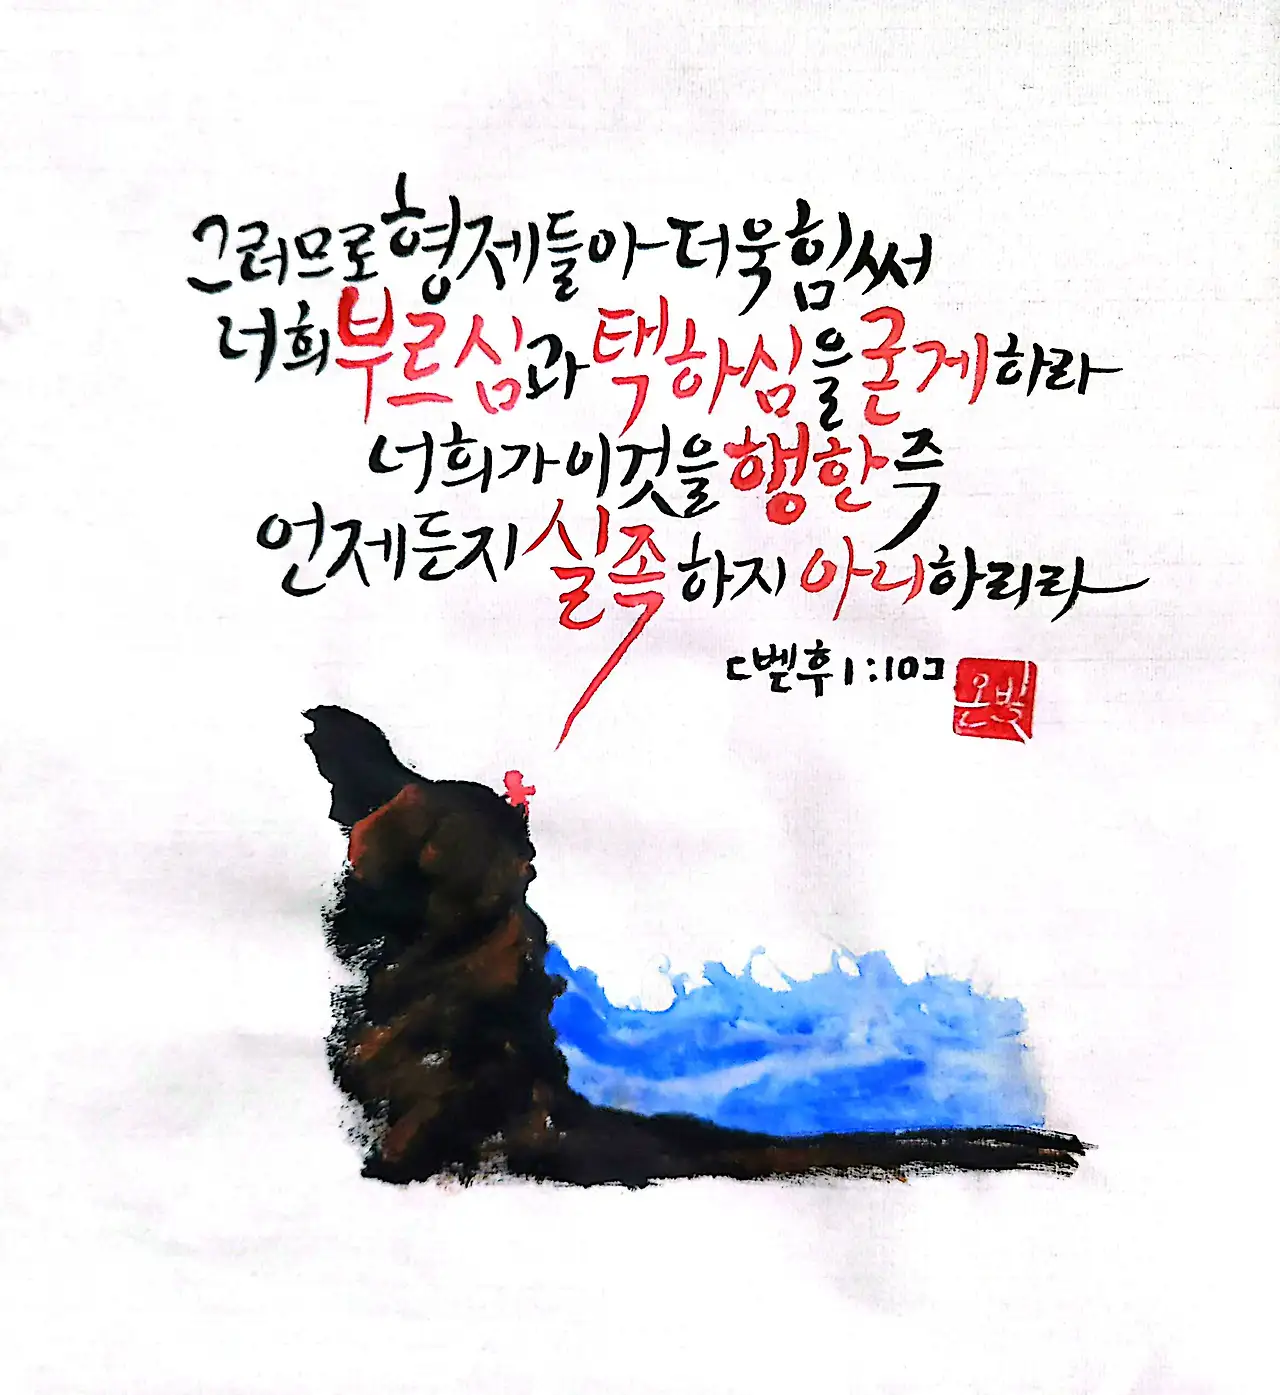 그러므로 형제들아 더욱 힘써
너희 부르심과 택하심을 굳게 하라
너희가 이것을 행한즉
언제든지 실족하지 아니하리라
[벧후 1:10]
온빛